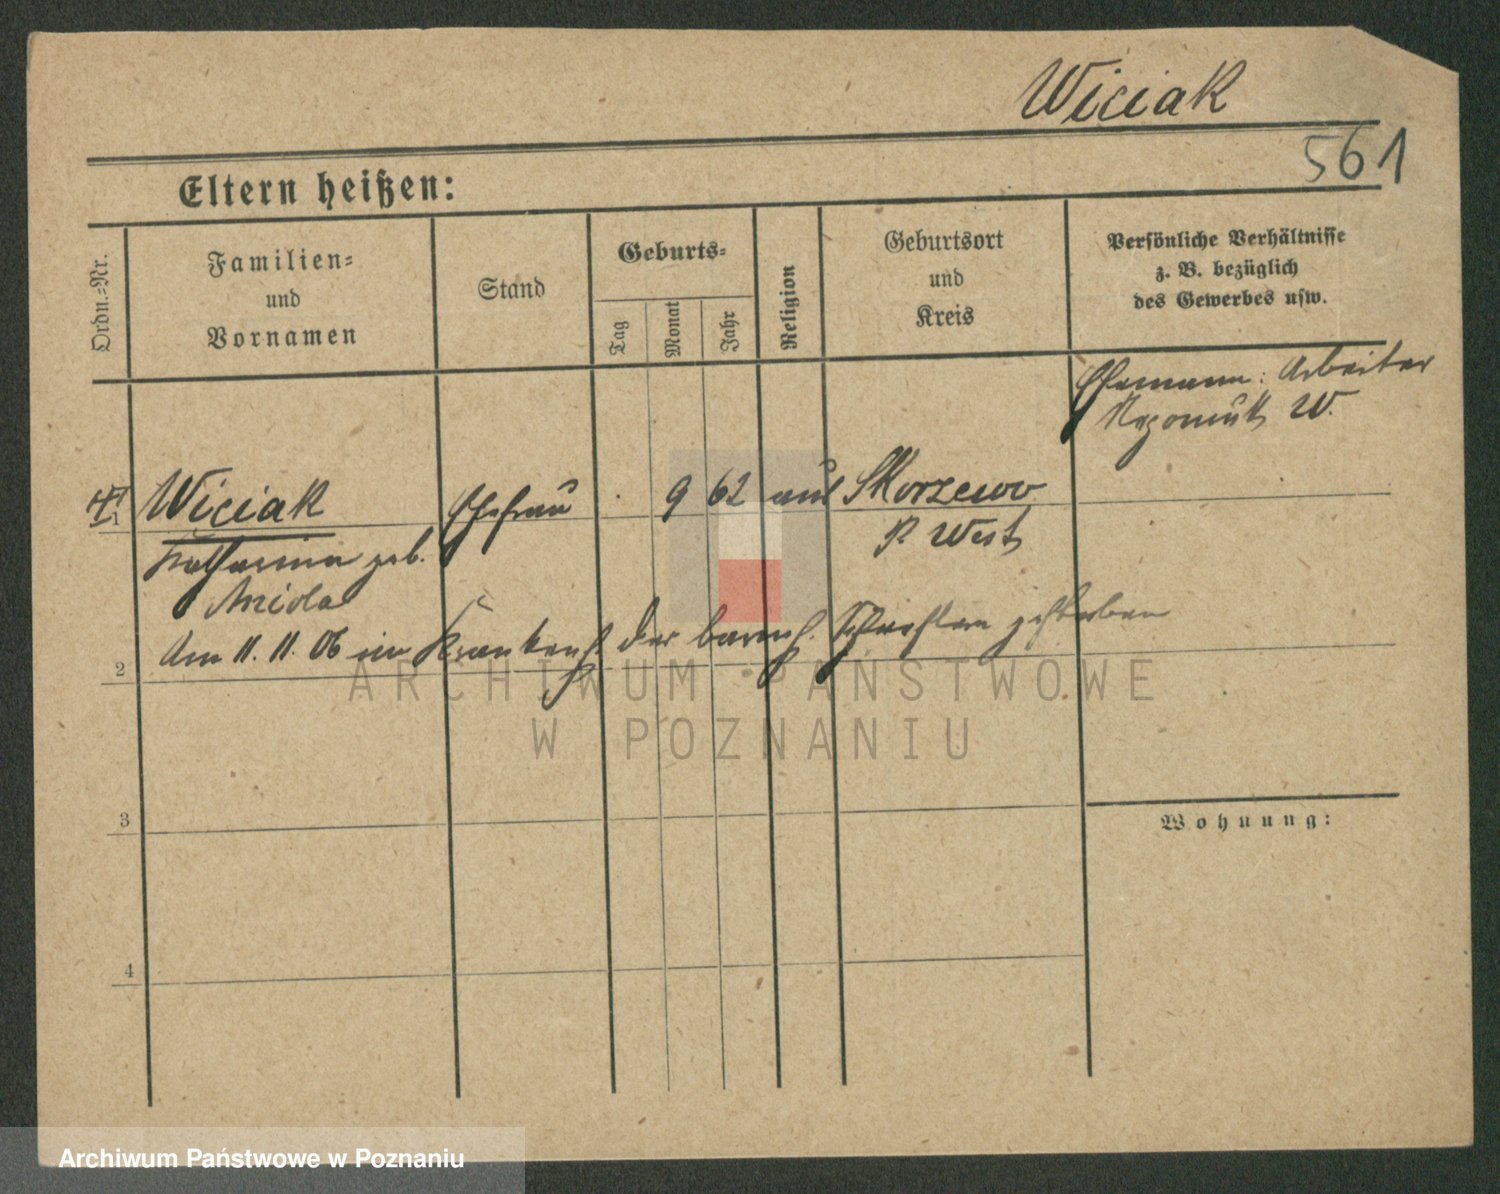 Wiciak
561
Eltern heißen:
Ordn.-Nr.
Familien-
und
Vornamen
Stand
Geburts-
Tag
Monat
Jahr
Religion
Geburtsort
und
Kreis
Persönliche Verhältnisse
z. B. bezüglich
des Gewerbes usw.
Ehemann: Arbeiter
Nepomuk W.
1 Wiciak Ehefrau 9 62 aus Skorzewo
Katharina geb. P. West
Aniola
Am 11. 11. 06 im Krankenh. der barmh. Schwestern gestorben
2
3
4
Wohnung:
ARCHIWUM PAŃSTWOWE
W POZNANIU
Archiwum Państwowe w Poznaniu